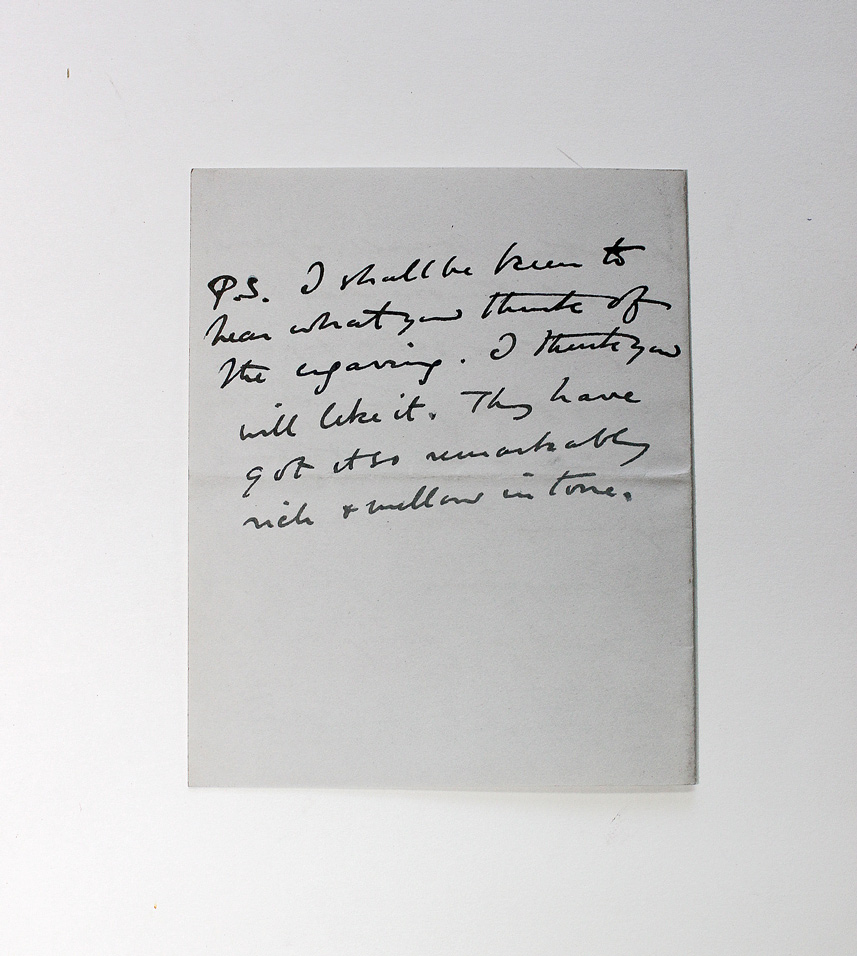 P.S. I shall be keen to
hear what you think of
the engraving. I think you
will like it. They have
got it so remarkably
rich & mellow in tone.